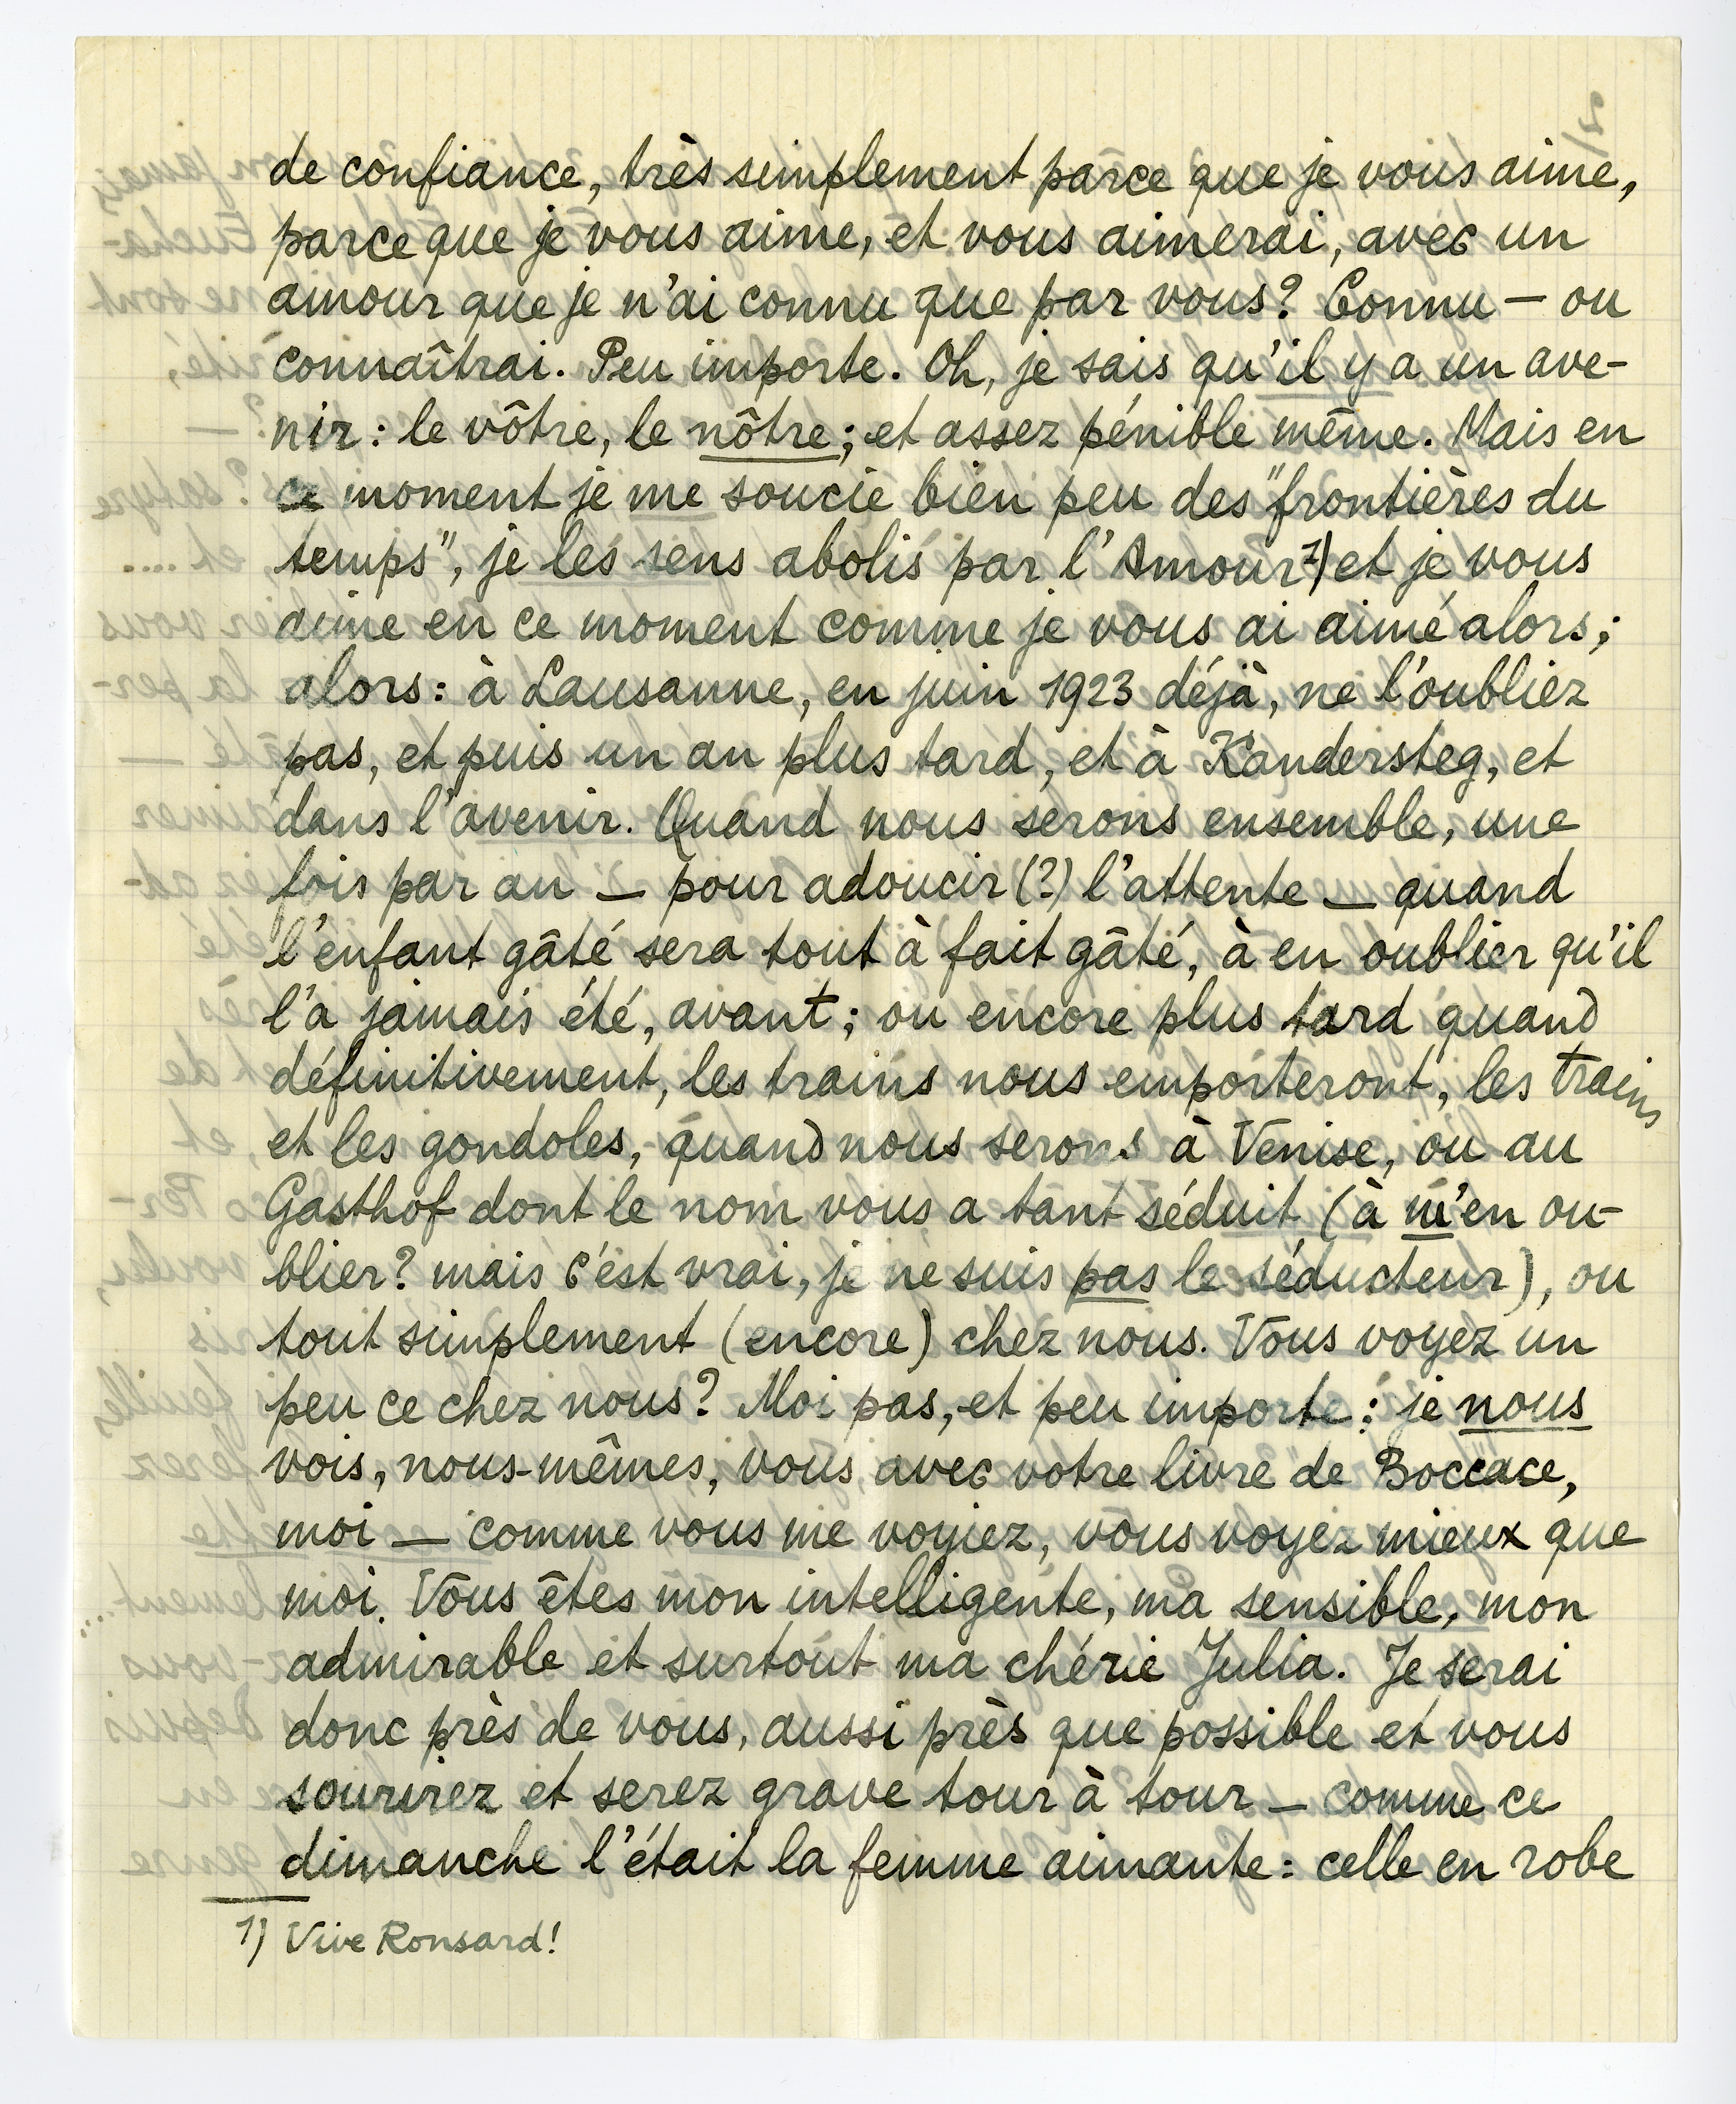 de confiance, très simplement parce que je vous aime,
parce que je vous aime, et vous aimerai, avec un
amour que je n'ai connu que par vous? Connu — ou
connaîtrai. Peu importe. Oh, je sais qu'il y a un ave-
nir: le vôtre, le nôtre; et assez pénible même. Mais en
ce moment je me soucie bien peu des "frontières du
temps", je les sens abolis par l'Amour 1) et je vous
aime en ce moment comme je vous ai aimé alors;
alors: à Lausanne, en juin 1923 déjà, ne l'oubliez
pas, et puis un an plus tard, et à Kandersteg, et
dans l'avenir. Quand nous serons ensemble, une
fois par an — pour adoucir (?) l'attente — quand
l'enfant gâté sera tout à fait gâté, à en oublier qu'il
l'a jamais été, avant; ou encore plus tard quand
définitivement, les trains nous emporteront, les trains
et les gondoles, - quand nous serons à Venise, ou au
Gasthof dont le nom vous a tant séduit (à m'en ou-
blier? mais c'est vrai, je ne suis pas le séducteur), ou
tout simplement (encore) chez nous. Vous voyez un
peu ce chez nous? Moi pas, et peu importe: je nous
vois, nous-mêmes, vous avec votre livre de Boccace,
moi — comme vous me voyiez, vous voyez mieux que
moi. Vous êtes mon intelligente, ma sensible, mon
admirable et surtout ma chérie Julia. Je serai
donc près de vous, aussi près que possible et vous
sourirez et serez grave tour à tour — comme ce
dimanche l'était la femme aimante: celle en robe
1) Vive Ronsard!